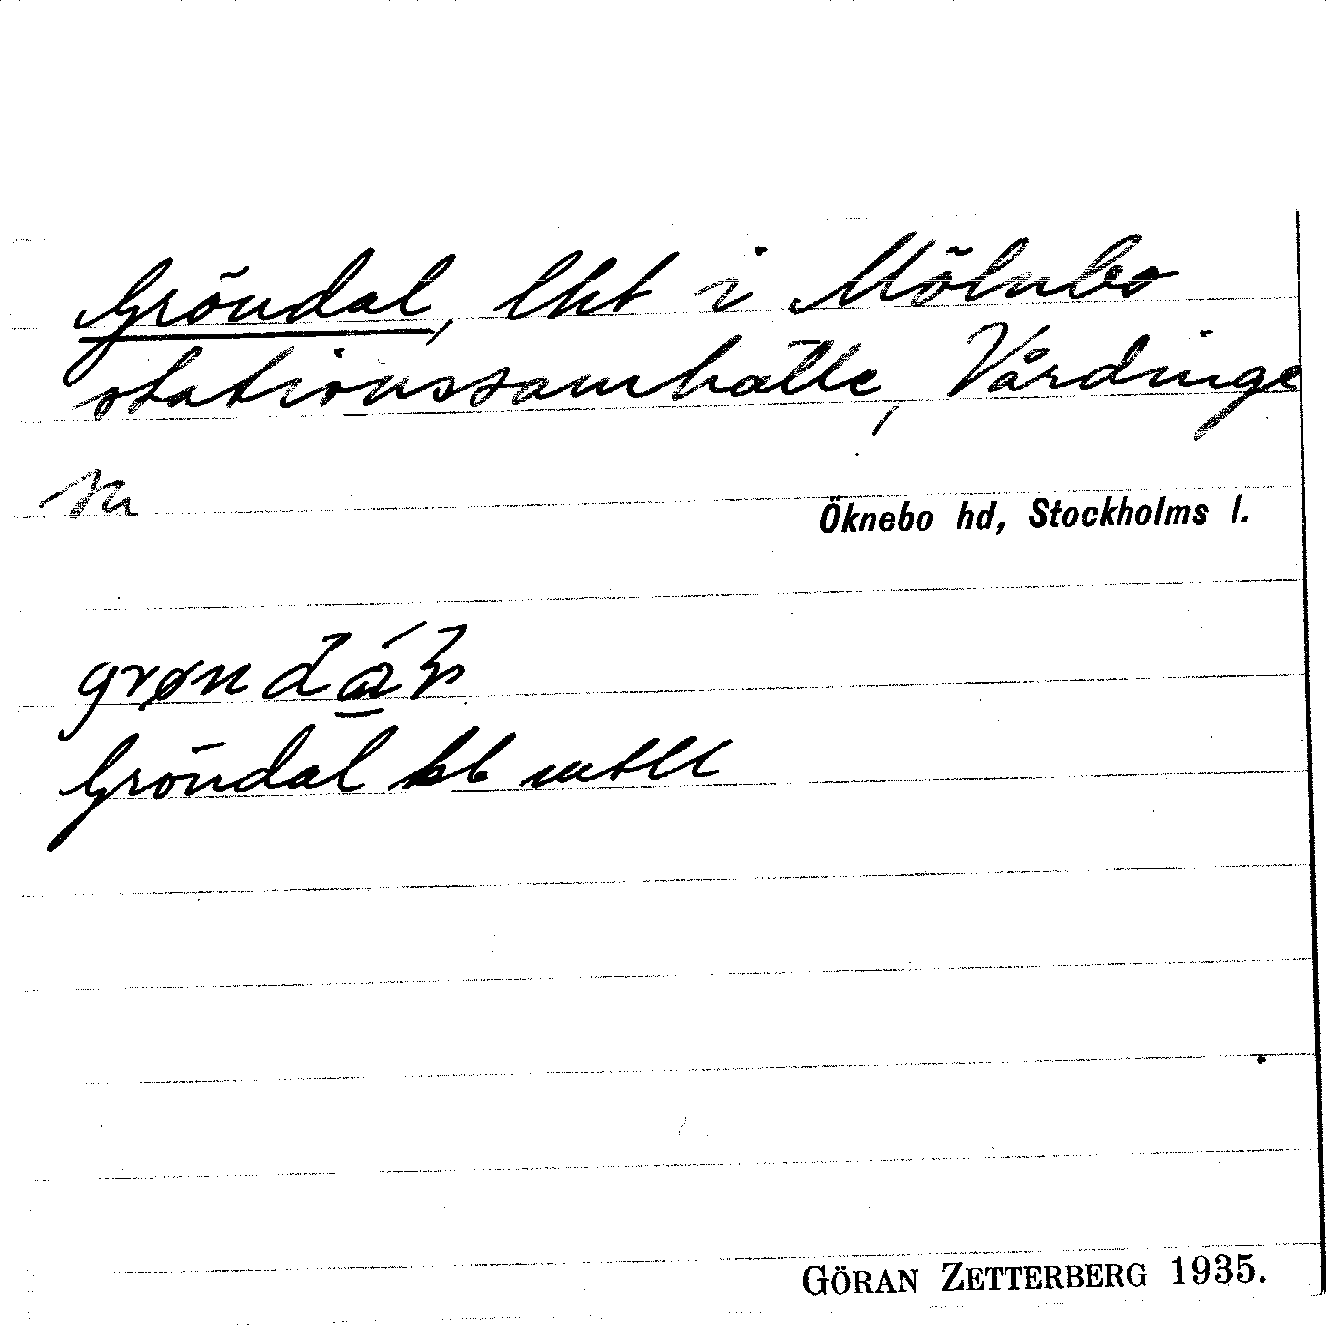 Gröndal, lht i Mölnbo
stationssamhälle, Vårdinge
sn
Öknebo hd, Stockholms l.
Gröndal bb mtll
GÖRAN ZETTERBERG 1935.